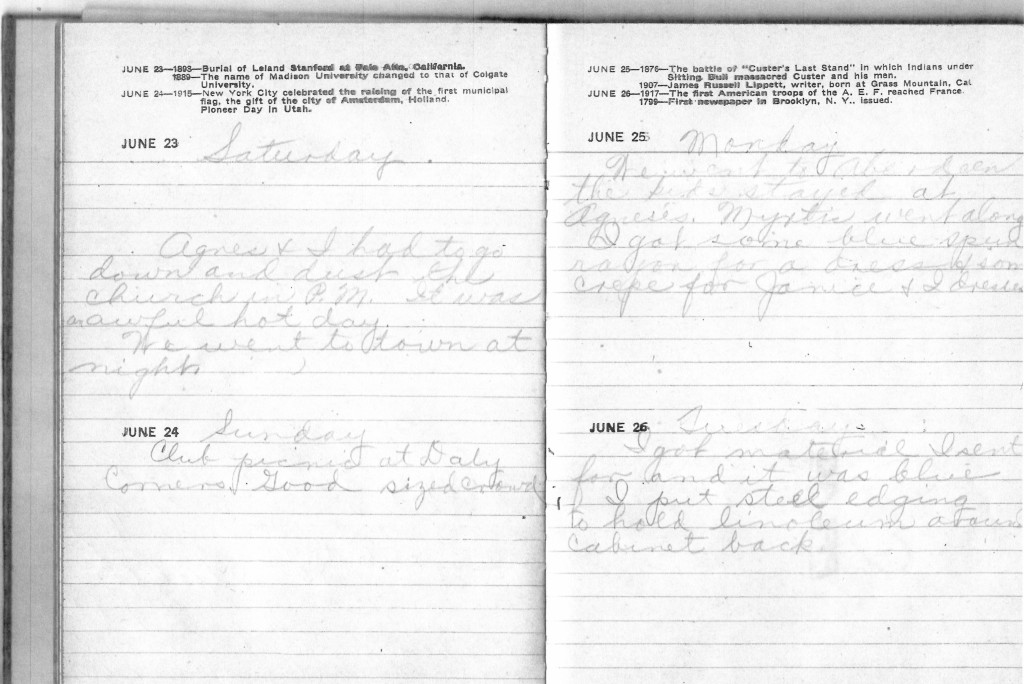 JUNE 23—1893—Burial of Leland Stanford at Palo Alto, California.
1889—The name of Madison University changed to that of Colgate
University.
JUNE 24—1915—New York City celebrated the raising of the first municipal
flag, the gift of the city of Amsterdam, Holland.
Pioneer Day in Utah.
JUNE 23 Saturday.
Agnes & I had to go
down and dust the
church in P.M. it was
an awful hot day.
We went to town at
night.
JUNE 24 Sunday
Club picnic at Daly
Corners. Good sized crowd
JUNE 25—1876—The battle of "Custer's Last Stand" in which Indians under
Sitting Bull massacred Custer and his men.
1907—James Russell Lippett, writer, born at Grass Mountain, Cal
JUNE 26—1917—The first American troops of the A. E. F. reached France.
1799—First newspaper in Brooklyn, N. Y.. issued.
JUNE 25 Monday
We went to
the kids stayed at
Agnes's. Myrtis went along
I got some blue spun
rayon for a dress & som
crepe for Janice & I dresses
JUNE 26 Tuesday
I got material I sent
for and it was blue
I put steel edging
to hold linoleum aroun
cabinet back.